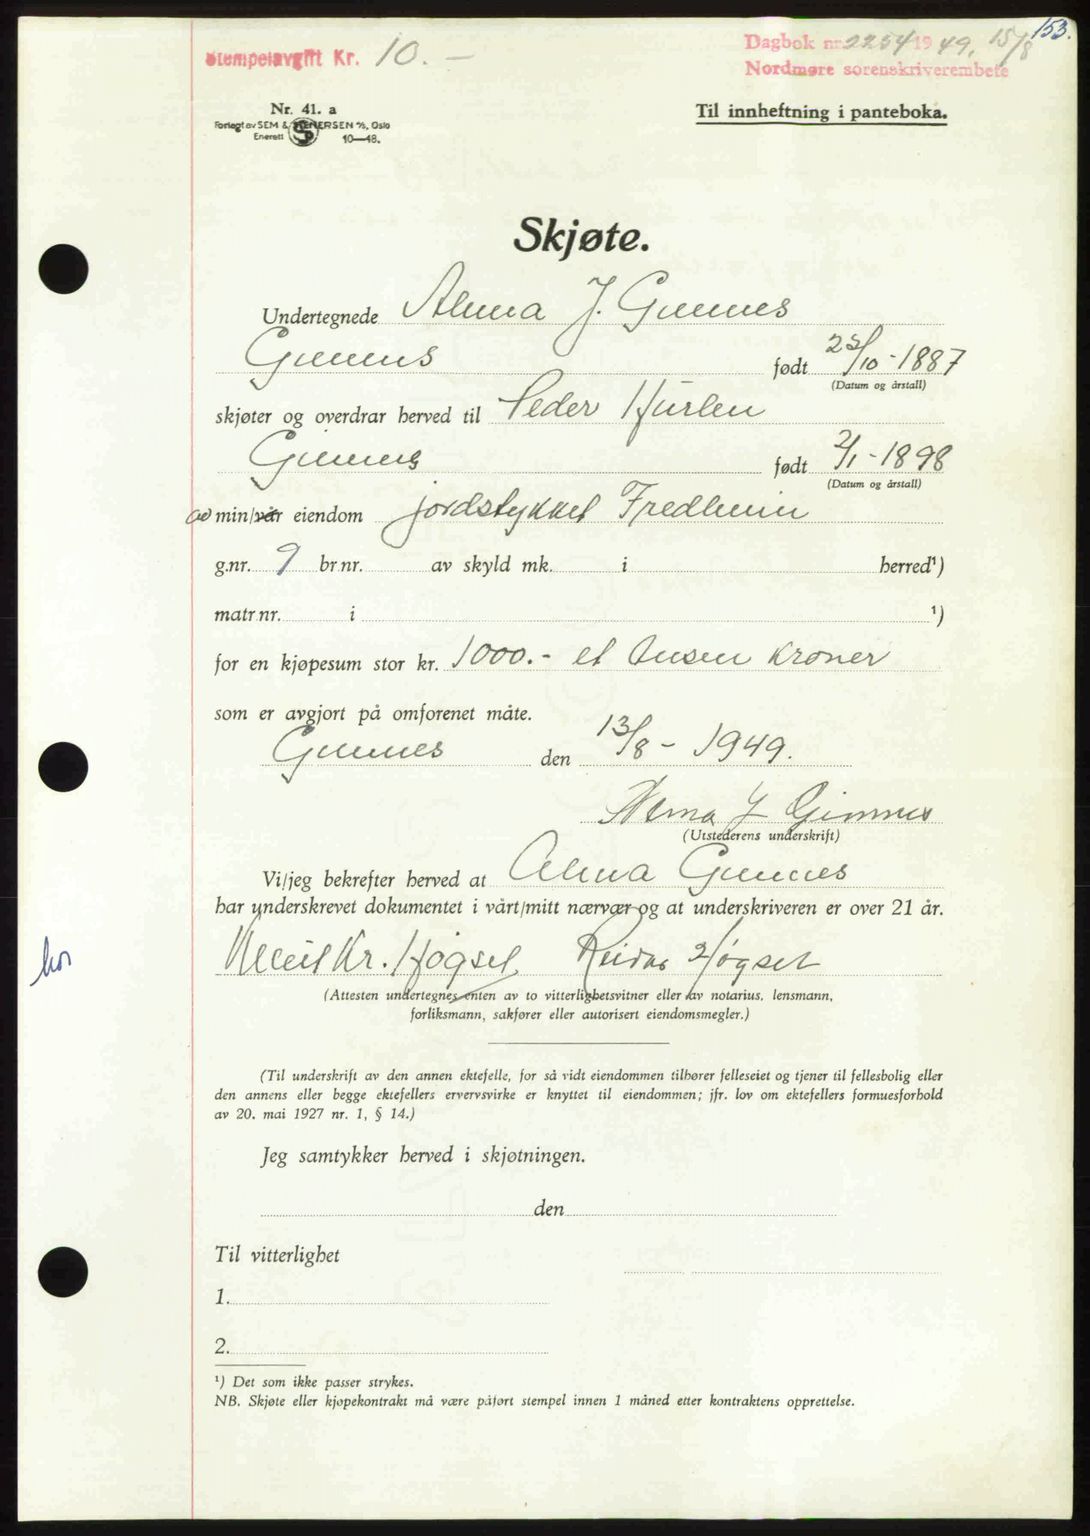 153.
Stempelavgift Kr. 10. –
Dagbok nr. 2254 1949, 15/8
Nordmøre sorenskriverembete
Nr. 41. a
Forlagt av SEM & STENERSEN A/S, Oslo
Enerett 10—48.
Til innheftning i panteboka.
Skjøte.
Undertegnede Alma J. Gimnes
Gimnes født 25/10-1887
(Datum og årstall)
skjøter og overdrar herved til Peder Hürlen
Gimnes født 2/1-1898
(Datum og årstall)
av min/vår eiendom jordstykket Fredheim
g.nr. 9 br.nr. av skyld mk. i herred¹)
matr.nr. i ¹)
for en kjøpesum stor kr. 1000.- et tusen kroner
som er avgjort på omforenet måte.
Gimnes den 13/8 - 1949.
Alma J Gimnes
(Utstederens underskrift)
Vi/jeg bekrefter herved at Alma Gimnes
har underskrevet dokumentet i vårt/mitt nærvær og at underskriveren er over 21 år.
Kr. Høgset Reidar Høgset
(Attesten undertegnes enten av to vitterlighetsvitner eller av notarius, lensmann,
forliksmann, sakfører eller autorisert eiendomsmegler.)
(Til underskrift av den annen ektefelle, for så vidt eiendommen tilhører felleseiet og tjener til fellesbolig eller
den annens eller begge ektefellers ervervsvirke er knyttet til eiendommen; jfr. lov om ektefellers formuesforhold
av 20. mai 1927 nr. 1, § 14.)
Jeg samtykker herved i skjøtningen.
den
Til vitterlighet
1.
2.
¹) Det som ikke passer strykes.
NB. Skjøte eller kjøpekontrakt må være påført stempel innen 1 måned etter kontraktens opprettelse.